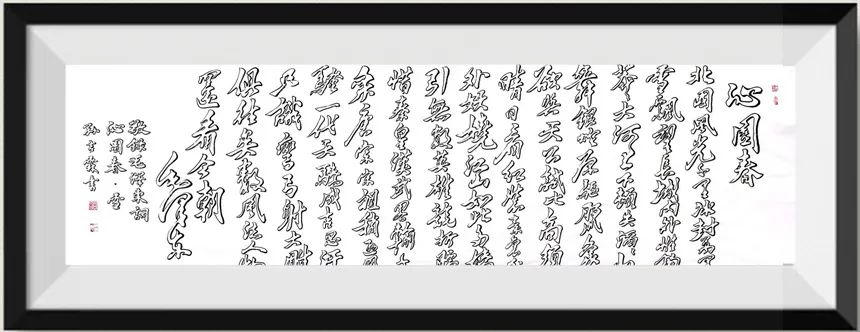 沁園春
北國風光千里冰封萬里
雪飄望長城内外惟餘
莽大河上下頓失滔
舞銀蛇原馳蠟象
欲與天公試比高須
晴日看紅裝素裹
外妖嬈江山如此多嬌
引無數英雄競折腰
惜秦皇漢武略輸文
采唐宗宋祖稍遜風
騷一代天驕成吉思汗
只識彎弓射大雕
俱往矣數風流人物
還看今朝
毛澤東
敬錄毛澤東詞
沁園春·雪
書